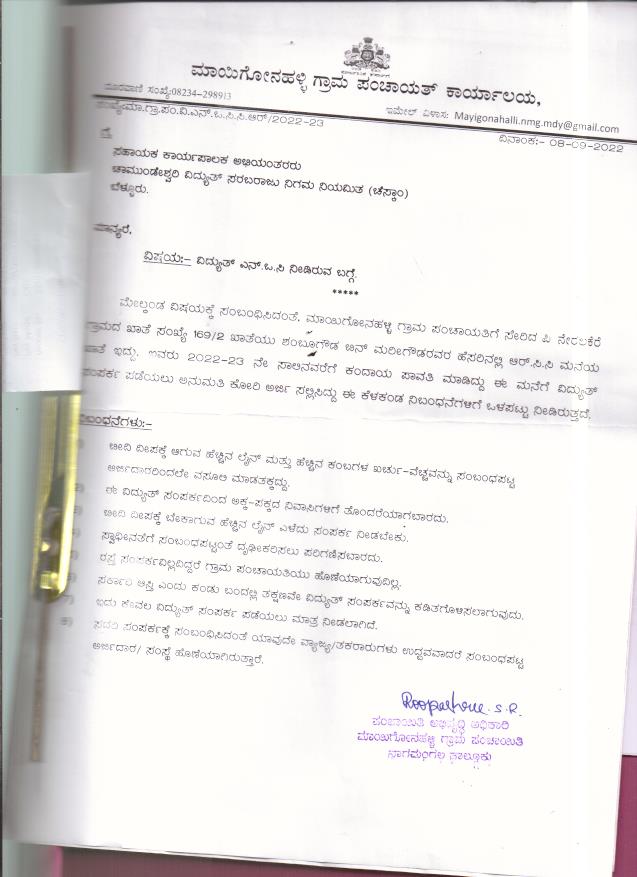 ಮಾಯಿಗೋನಹಳ್ಳಿ ಗ್ರಾಮ ಪಂಚಾಯತ್ ಕಾರ್ಯಾಲಯ,
ದೂರವಾಣಿ ಸಂಖ್ಯೆ:08234-298913
ಇಮೇಲ್ ವಿಳಾಸ: Mayigonahalli.nmg.mdy@gmail.com
ಸಂಖ್ಯೆ:ಮಾ.ಗ್ರಾ.ಪಂ.ವಿ.ಎನ್.ಒ.ಸಿ.ಸಿ.ಆರ್/2022-23
ದಿನಾಂಕ:- 08-09-2022
ಗೆ,
ಸಹಾಯಕ ಕಾರ್ಯಪಾಲಕ ಅಭಿಯಂತರರು
ಚಾಮುಂಡೇಶ್ವರಿ ವಿದ್ಯುತ್ ಸರಬರಾಜು ನಿಗಮ ನಿಯಮಿತ (ಚೆಸ್ಕಾಂ)
ಬೆಳ್ಳೂರು.
ಮಾನ್ಯರೆ,
ವಿಷಯ:- ವಿದ್ಯುತ್ ಎನ್.ಒ.ಸಿ ನೀಡಿರುವ ಬಗ್ಗೆ.
*****
ಮೇಲ್ಕಂಡ ವಿಷಯಕ್ಕೆ ಸಂಬಂಧಿಸಿದಂತೆ, ಮಾಯಿಗೋನಹಳ್ಳಿ ಗ್ರಾಮ ಪಂಚಾಯತಿಗೆ ಸೇರಿದ ಪಿ ನೇರಲಕೆರೆ
ಗ್ರಾಮದ ಖಾತೆ ಸಂಖ್ಯೆ 169/2 ಖಾತೆಯು ಶಂಬೂಗೌಡ ಬಿನ್ ಮರೀಗೌಡರವರ ಹೆಸರಿನಲ್ಲಿ ಆರ್.ಸಿ.ಸಿ ಮನೆಯ
ಖಾತೆ ಇದ್ದು, ಇವರು 2022-23 ನೇ ಸಾಲಿನವರೆಗೆ ಕಂದಾಯ ಪಾವತಿ ಮಾಡಿದ್ದು ಈ ಮನೆಗೆ ವಿದ್ಯುತ್
ಸಂಪರ್ಕ ಪಡೆಯಲು ಅನುಮತಿ ಕೋರಿ ಅರ್ಜಿ ಸಲ್ಲಿಸಿದ್ದು ಈ ಕೆಳಕಂಡ ನಿಬಂಧನೆಗಳಿಗೆ ಒಳಪಟ್ಟು ನೀಡಿರುತ್ತದೆ.
ನಿಬಂಧನೆಗಳು:-
ಬೀದಿ ದೀಪಕ್ಕೆ ಆಗುವ ಹೆಚ್ಚಿನ ಲೈನ್ ಮತ್ತು ಹೆಚ್ಚಿನ ಕಂಬಗಳ ಖರ್ಚು-ವೆಚ್ಚವನ್ನು ಸಂಬಂಧಪಟ್ಟ
ಅರ್ಜಿದಾರರಿಂದಲೇ ವಸೂಲಿ ಮಾಡತಕ್ಕದ್ದು.
ಈ ವಿದ್ಯುತ್ ಸಂಪರ್ಕದಿಂದ ಅಕ್ಕ-ಪಕ್ಕದ ನಿವಾಸಿಗಳಿಗೆ ತೊಂದರೆಯಾಗಬಾರದು.
ಬೀದಿ ದೀಪಕ್ಕೆ ಬೇಕಾಗುವ ಹೆಚ್ಚಿನ ಲೈನ್ ಎಳೆದು ಸಂಪರ್ಕ ನೀಡಬೇಕು.
ಸ್ವಾಧೀನತೆಗೆ ಸಂಬಂಧಪಟ್ಟಂತೆ ದೃಢೀಕರಿಸಲು ಪರಿಗಣಿಸಬಾರದು.
ರಸ್ತೆ ಸಂಪರ್ಕವಿಲ್ಲವಿದ್ದರೆ ಗ್ರಾಮ ಪಂಚಾಯತಿಯು ಹೊಣೆಯಾಗುವುದಿಲ್ಲ.
ಸರ್ಕಾರಿ ಆಸ್ತಿ ಎಂದು ಕಂಡು ಬಂದಲ್ಲಿ ತಕ್ಷಣವೇ ವಿದ್ಯುತ್ ಸಂಪರ್ಕವನ್ನು ಕಡಿತಗೊಳಿಸಲಾಗುವುದು.
ಇದು ಕೇವಲ ವಿದ್ಯುತ್ ಸಂಪರ್ಕ ಪಡೆಯಲು ಮಾತ್ರ ನೀಡಲಾಗಿದೆ.
ಸದರಿ ಸಂಪರ್ಕಕ್ಕೆ ಸಂಬಂಧಿಸಿದಂತೆ ಯಾವುದೇ ವ್ಯಾಜ್ಯ/ತಕರಾರುಗಳು ಉದ್ಭವವಾದರೆ ಸಂಬಂಧಪಟ್ಟ
ಅರ್ಜಿದಾರ/ ಸಂಸ್ಥೆ ಹೊಣೆಯಾಗಿರುತ್ತಾರೆ.
S.R.
ಪಂಚಾಯಿತಿ ಅಭಿವೃದ್ಧಿ ಅಧಿಕಾರಿ
ಮಾಯಿಗೋನಹಳ್ಳಿ ಗ್ರಾಮ ಪಂಚಾಯಿತಿ
ನಾಗಮಂಗಲ ತಾಲ್ಲೂಕು